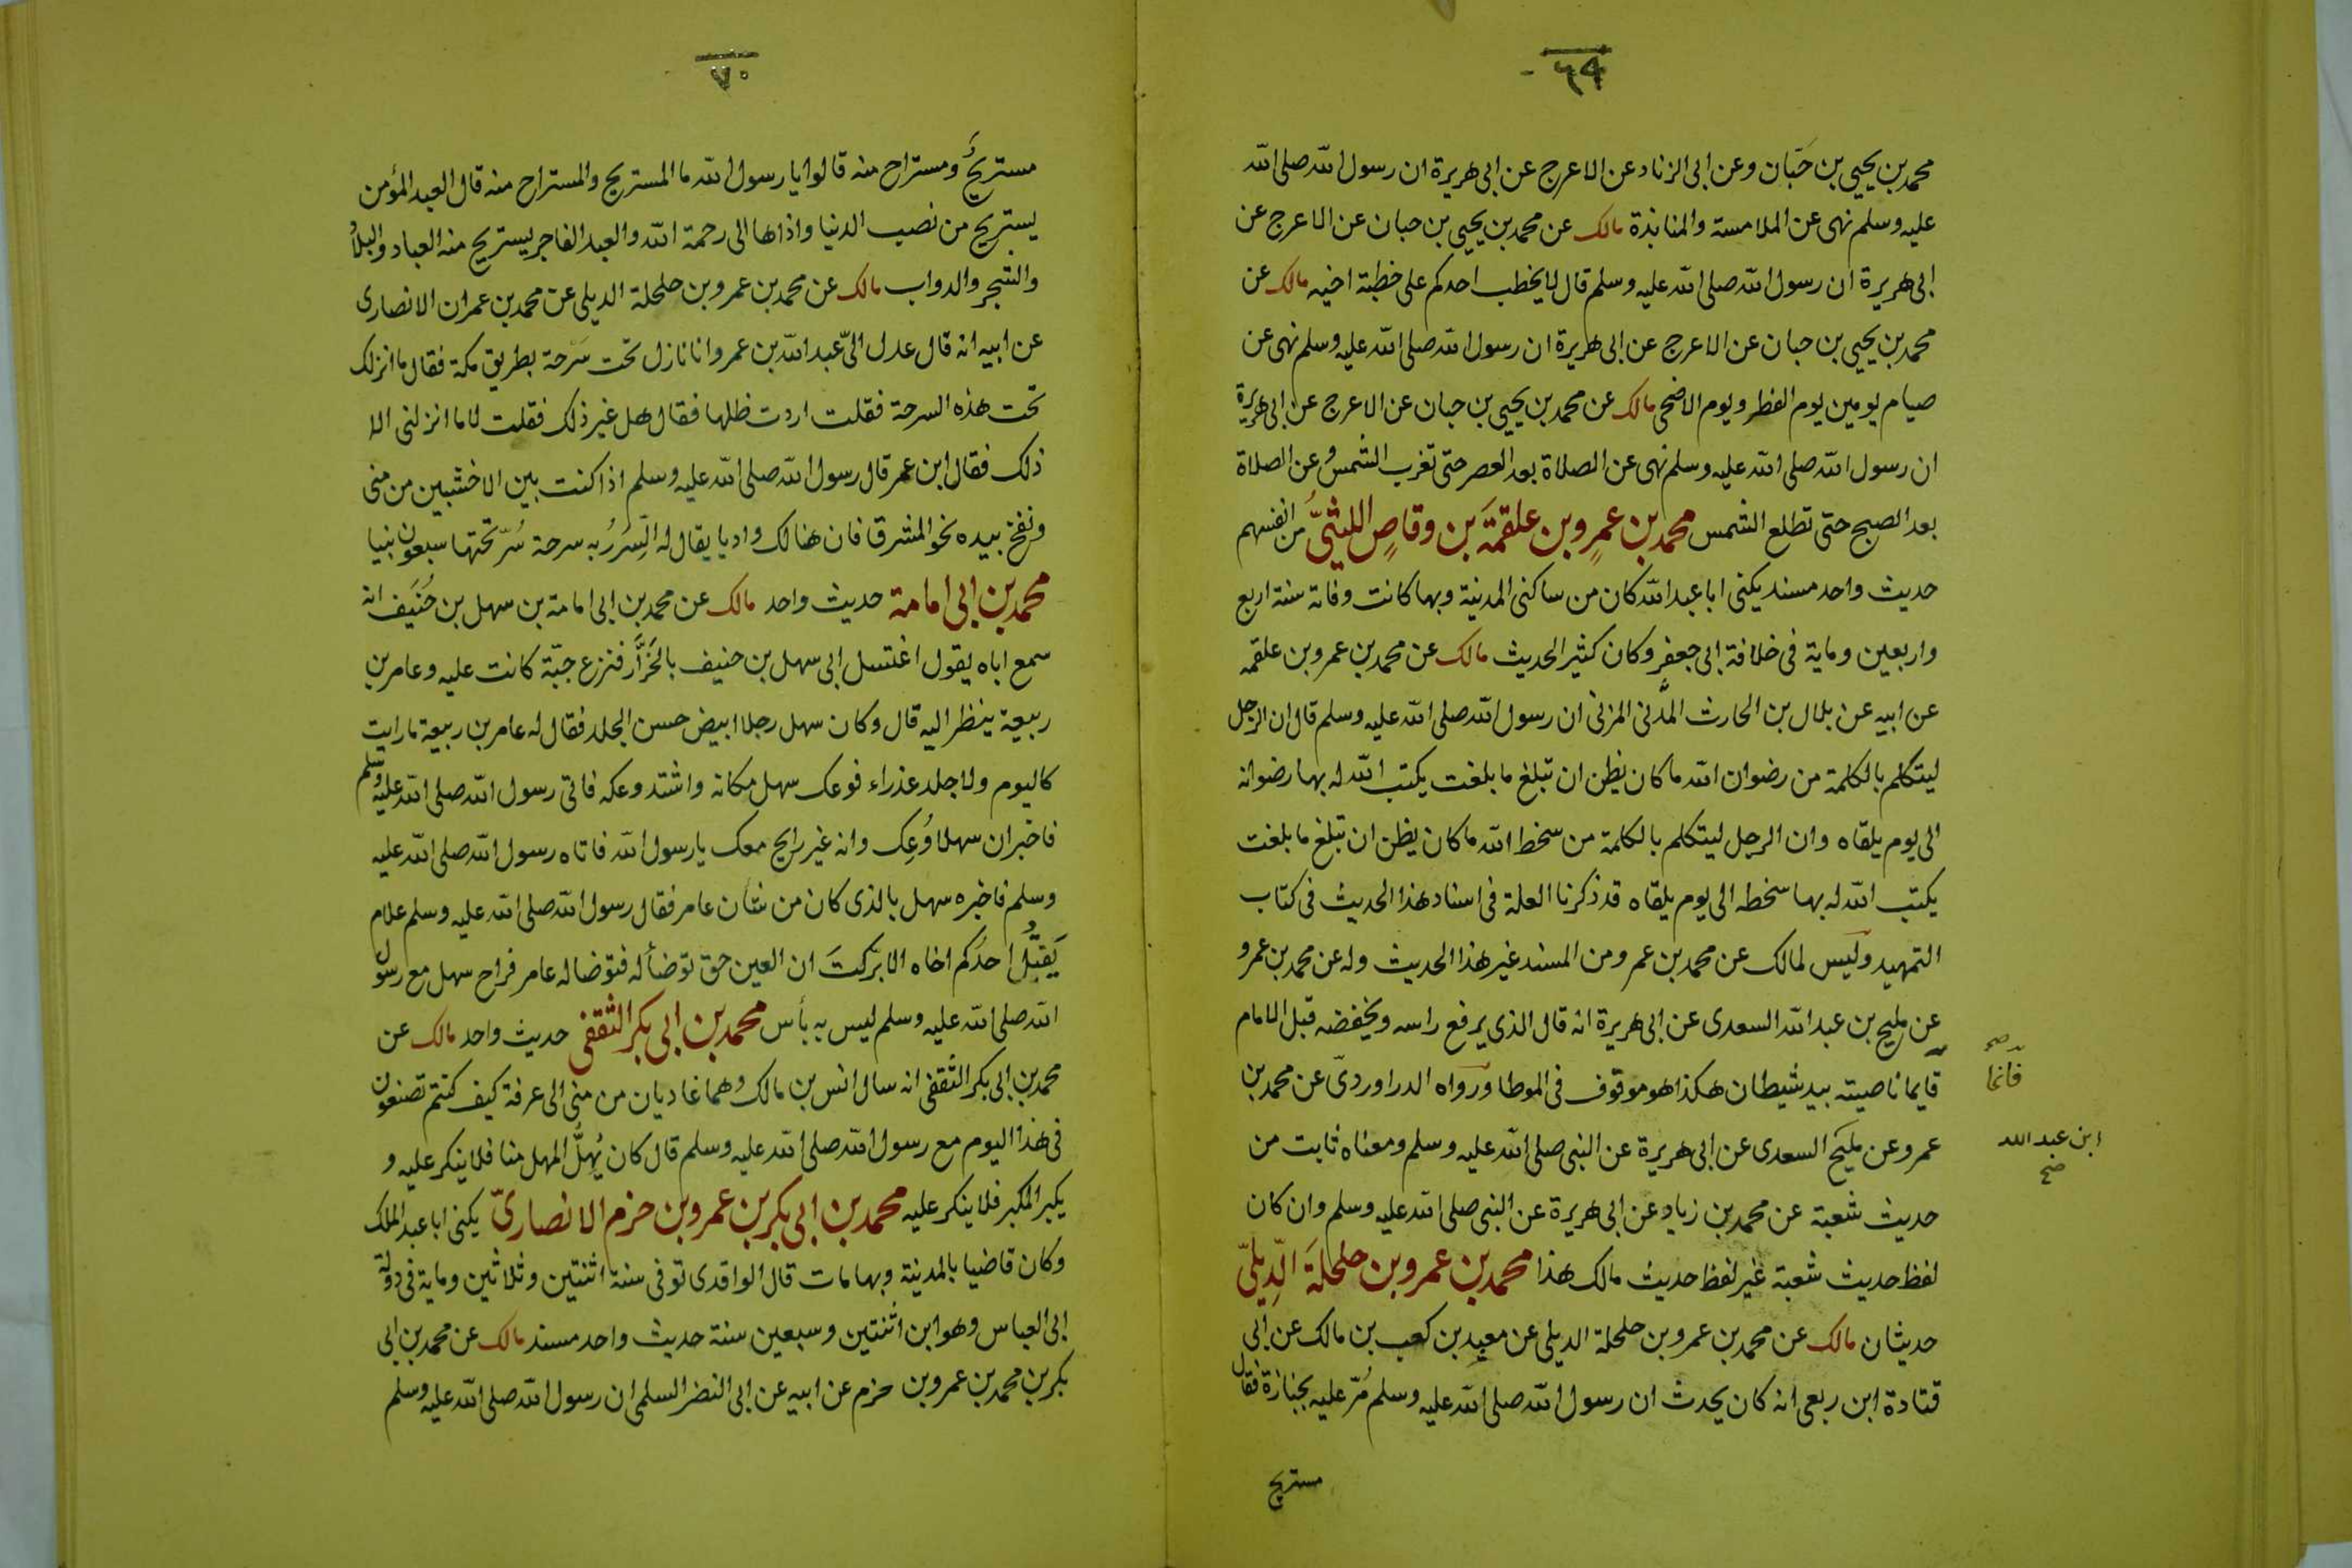 ٦٩
محمد بن يحيى بن حَبّان وعن ابى الزناد عن الاعرج عن ابى هريرة ان رسول الله صلى الله
عليه وسلم نهى عن الملامسة والمنابذة مالك عن محمد بن يحيى بن حبان عن الاعرج عن
ابى هريرة ان رسول الله صلى الله عليه وسلم قال لا يخطب احدكم على خطبة اخيه مالك عن
محمد بن يحيى بن حبان عن الاعرج عن ابى هريرة ان رسول الله صلى الله عليه وسلم نهى عن
صيام يومين يوم الفطر ويوم الاضحى مالك عن محمد بن يحيى بن حبان عن الاعرج عن ابى هريرة
ان رسول الله صلى الله عليه وسلم نهى عن الصلاة بعد العصر حتى تغرب الشمس وعن الصلاة
بعد الصبح حتى تطلع الشمس محمد بن عمرٍو بن علقمَةَ بن وقاصٍ الليثيُّ من انفسهم
حديث واحد مسند يكنى ابا عبد الله كان من ساكنى المدينة وبها كانت وفاته سنة اربع
واربعين وماية فى خلافة ابى جعفر وكان كثير الحديث مالك عن محمد بن عمرو بن علقمه
عن ابيه عن بلال بن الحارث المَدنى المزنى ان رسول الله صلى الله عليه وسلم قال ان الرجل
ليتكلم بالكلمة من رضوان الله ما كان يظن ان تبلغ ما بلغت يكتب الله له بها رضوانه
الى يوم يلقاه وان الرجل ليتكلم بالكلمة من سخط الله ما كان يظن ان تبلغ ما بلغت
يكتب الله له بها سخطه الى يوم يلقاه قد ذكرنا العلة فى اسناد هذا الحديث فى كتاب
التمهيد وليس لمالك عن محمد بن عمرو من المسند غير هذا الحديث وله عن محمد بن عمرو
عن مليح بن عبد الله السعدى عن ابى هريرة انه قال الذى يرفع راسه ويخفضه قبل الامام
قايما ناصيته بيد شيطان هكذا هو موقوف فى الموطا ورواه الدراوردىّ عن محمد بن
فانما
صح
عمرو عن مليح السعدى عن ابى هريرة عن النبى صلى الله عليه وسلم ومعناه ثابت من
ابن عبد الله
صح
حديث شعبة عن محمد بن زياد عن ابى هريرة عن النبى صلى الله عليه وسلم وان كان
لفظ حديث شعبة غير لفظ حديث مالك هذا محمد بن عمرو بن حلحلَةَ الدِّيلىّ
حديثان مالك عن محمد بن عمرو بن حلحلة الديلى عن معبد بن كعب بن مالك عن ابى
قتادة ابن ربعى انه كان يحدث ان رسول الله صلى الله عليه وسلم مُرّ عليه بجنازة فقال
مستريح
٧٠
مستريحٌ ومستراح منه قالوا يا رسول الله ما المستريح والمستراح منه قال العبد المؤمن
يستريح من نصب الدنيا واذاها الى رحمة الله والعبد الفاجر يستريح منه العباد والبلاد
والشجر والدواب مالك عن محمد بن عمرو بن حلحلة الديلى عن محمد بن عمران الانصارى
عن ابيه انه قال عدل الىّ عبد الله بن عمر وانا نازل تحت سَرحة بطريق مكة فقال ما انزلك
تحت هذه السرحة فقلت اردت ظلها فقال هل غير ذلك فقلت لا ما انزلنى الا
ذلك فقال ابن عمر قال رسول الله صلى الله عليه وسلم اذا كنت بين الاخشبين من منى
ونفخ بيده نحو المشرق فان هنالك واديا يقال له السِّرَرُ به سرحة سُرّ تحتها سبعون نبيا
محمد بن ابى امامة حديث واحد مالك عن محمد بن ابى امامة بن سهل بن حُنَيف انه
سمع اباه يقول اغتسل ابى سهل بن حنيف بالخَرَّار فنزع جبّة كانت عليه وعامر بن
ربيعة ينظر اليه قال وكان سهل رجلا ابيض حسن الجلد فقال له عامر بن ربيعة ما رايت
كاليوم ولا جلد عذراء فوعك سهل مكانه واشتد وعكه فاتى رسول الله صلى الله عليه وسلم
فاخبر ان سهلا وُعِك وانه غير رايح معك يا رسول الله فاتاه رسول الله صلى الله عليه
وسلم فاخبره سهل بالذى كان من شان عامر فقال رسول الله صلى الله عليه وسلم علام
يَقتُلُ احدُكم اخاه الا بَرّكتَ ان العين حق توضأ له فتوضا له عامر فراح سهل مع رسول
الله صلى الله عليه وسلم ليس به بأس محمد بن ابى بكر الثقفى حديث واحد مالك عن
محمد بن ابى بكر الثقفى انه سال انس بن مالك وهما غاديان من منى الى عرفة كيف كنتم تصنعون
فى هذا اليوم مع رسول الله صلى الله عليه وسلم قال كان يُهلّ المهل منا فلا ينكر عليه و
يكبر المكبر فلا ينكر عليه محمد بن ابى بكر بن عمرو بن حزم الانصارىّ يكنى ابا عبد الملك
وكان قاضيا بالمدينة وبها مات قال الواقدى توفى سنة اثنتين وثلاثين وماية فى دولة
ابى العباس وهو ابن اثنتين وسبعين سنة حديث واحد مسند مالك عن محمد بن ابى
بكر بن محمد بن عمرو بن حزم عن ابيه عن ابى النضر السلمى ان رسول الله صلى الله عليه وسلم